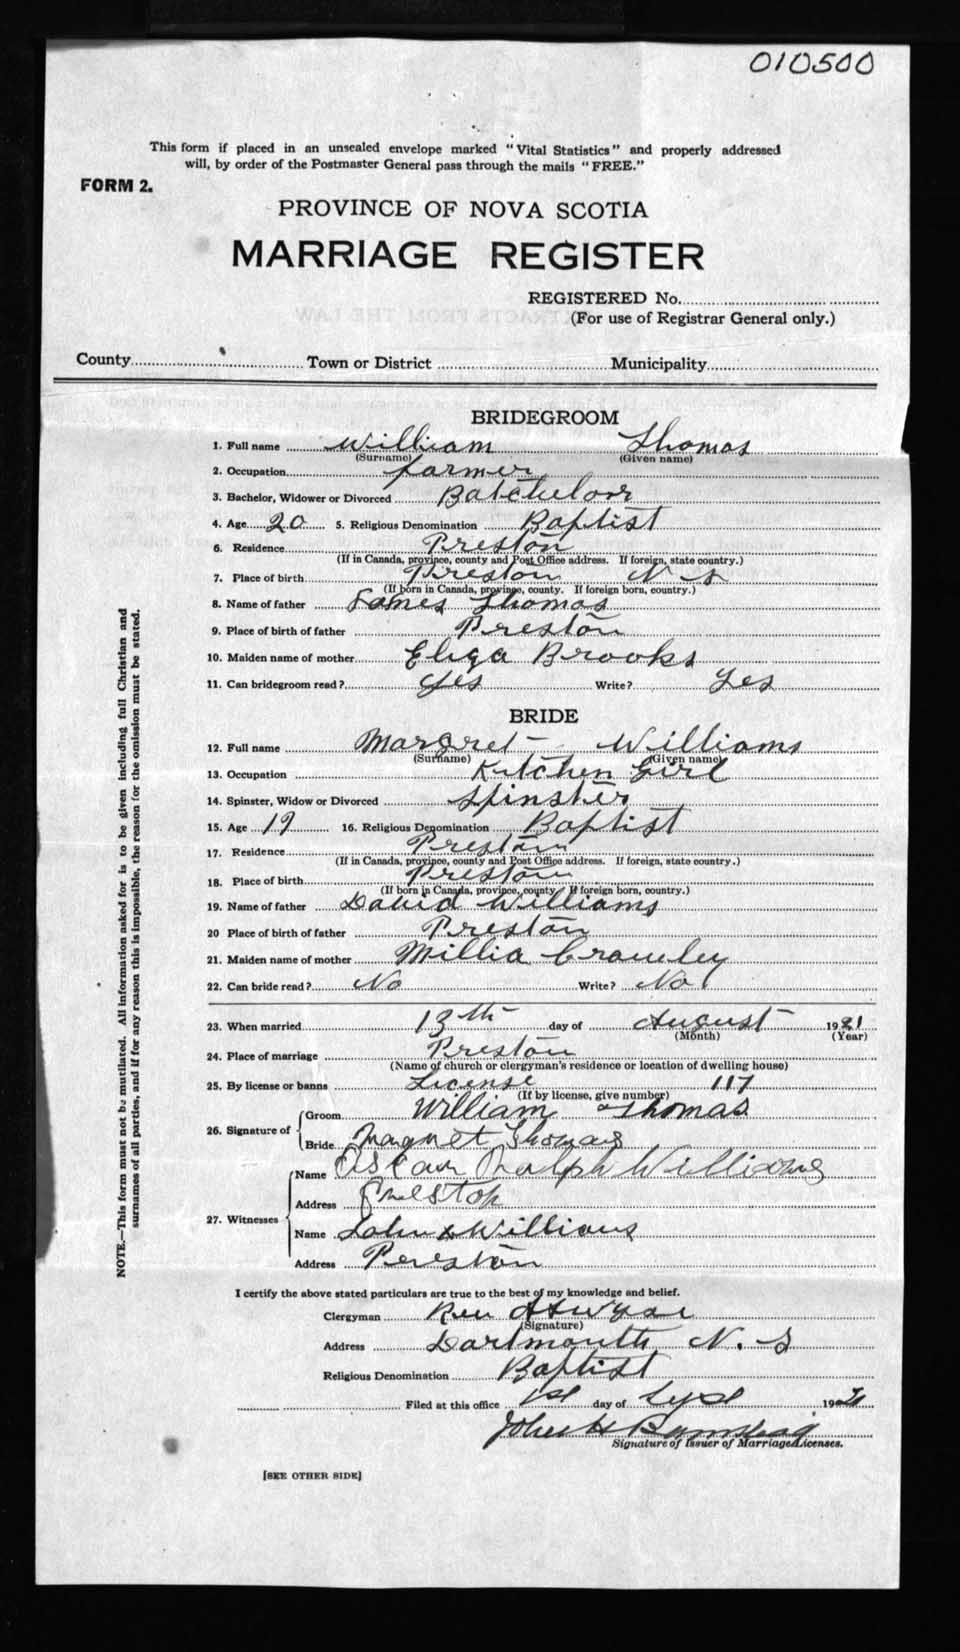 010500
This form if placed in an unsealed envelope marked "Vital Statistics" and properly addressed
will, by order of the Postmaster General pass through the mails "FREE."
FORM 2.
PROVINCE OF NOVA SCOTIA
MARRIAGE REGISTER
REGISTERED No.
(For use of Registrar General only.)
County Town or District Municipality
BRIDEGROOM
1. Full name William Thomas
(Surname) (Given name)
2. Occupation farmer
3. Bachelor, Widower or Divorced Batchelour
4. Age 20 5. Religious Denomination Baptist
6. Residence Preston
(If in Canada, province, county and Post Office address. If foreign, state country.)
7. Place of birth Preston N S
(If born in Canada, province, county. If foreign born, country.)
8. Name of father James Thomas
9. Place of birth of father Preston
10. Maiden name of mother Eliza Brooks
11. Can bridegroom read? Yes Write? Yes
BRIDE
12. Full name Margret Williams
(Surname) (Given name)
13. Occupation Kitchen Girl
14. Spinster, Widow or Divorced Spinster
15. Age 19 16. Religious Denomination Baptist
17. Residence Preston
(If in Canada, province, county and Post Office address. If foreign, state country.)
18. Place of birth Preston
(If born in Canada, province, county If foreign born, country.)
19. Name of father David Williams
20 Place of birth of father Preston
21. Maiden name of mother Millia Crawley
22. Can bride read? No Write? No
23. When married 13th day of August 1921
(Month) (Year)
24. Place of marriage Preston
(Name of church or clergyman's residence or location of dwelling house)
25. By license or banns License 117
(If by license, give number)
26. Signature of Groom William Thomas
Bride Magret Thomas
27. Witnesses Name Ralph Williams
Address Preston
Name John Williams
Address Preston
I certify the above stated particulars are true to the best of my knowledge and belief.
Clergyman Rev
(Signature)
Address Dartmouth N. S
Religious Denomination Baptist
Filed at this office 1st day of 1921
John H
Signature of Issuer of Marriage Licenses.
[SEE OTHER SIDE]
NOTE.—This form must not be mutilated. All information asked for is to be given including full Christian and
surnames of all parties, and if for any reason this is impossible, the reason for the omission must be stated.